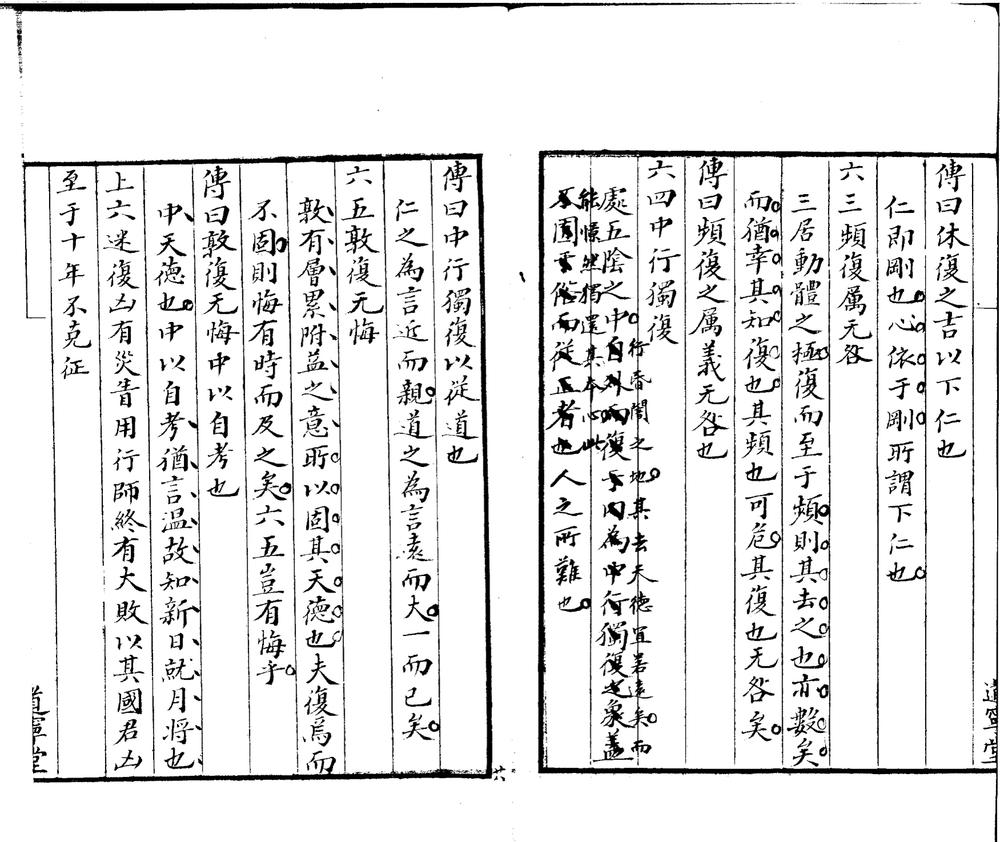 傳曰休復之吉以下仁也
仁即剛也心依于剛所謂下仁也
六三頻復厲无咎
三居動體之極復而至于頻則其去之也亦數矣
而猶幸其知復也其頻也可危其復也无咎矣
傳曰頻復之厲義无咎也
六四中行獨復
處五陰之中行昏闇之地其去天德宜若遠矣而
能懷然獨還其本心此
人之所難也
道寧堂
傳曰中行獨復以從道也
仁之為言近而親道之為言遠而大一而已矣
六五敦復无悔
敦有層累附益之意所以固其天德也夫復焉而
不固則悔有時而及之矣六五豈有悔乎
傳曰敦復无悔中以自考也
中天德也中以自考猶言温故知新日就月將也
上六迷復凶有災眚用行師終有大敗以其國君凶
至于十年不克征
道寧堂